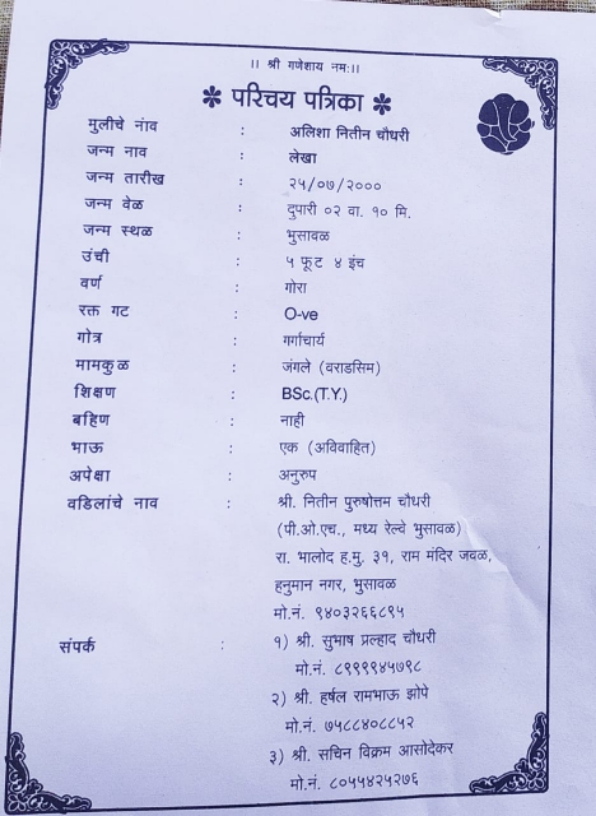 ।। श्री गणेशाय नमः।।
* परिचय पत्रिका *
मुलीचे नांव : अलिशा नितीन चौधरी
जन्म नाव : लेखा
जन्म तारीख : २५/०७/२०००
जन्म वेळ : दुपारी ०२ वा. १० मि.
जन्म स्थळ : भुसावळ
उंची : ५ फूट ४ इंच
वर्ण : गोरा
रक्त गट : O-ve
गोत्र : गर्गाचार्य
मामकुळ : जंगले (वराडसिम)
शिक्षण : BSc.(T.Y.)
बहिण : नाही
भाऊ : एक (अविवाहित)
अपेक्षा : अनुरुप
वडिलांचे नाव : श्री. नितीन पुरुषोत्तम चौधरी
(पी.ओ.एच., मध्य रेल्वे भुसावळ)
रा. भालोद ह.मु. ३१, राम मंदिर जवळ,
हनुमान नगर, भुसावळ
मो.नं. ९४०३२६६८९५
संपर्क : १) श्री. सुभाष प्रल्हाद चौधरी
मो.नं. ८९९९९४५७९८
२) श्री. हर्षल रामभाऊ झोपे
मो.नं. ७५८८४०८८५२
३) श्री. सचिन विक्रम आसोदेकर
मो.नं. ८०५५४२५२७६